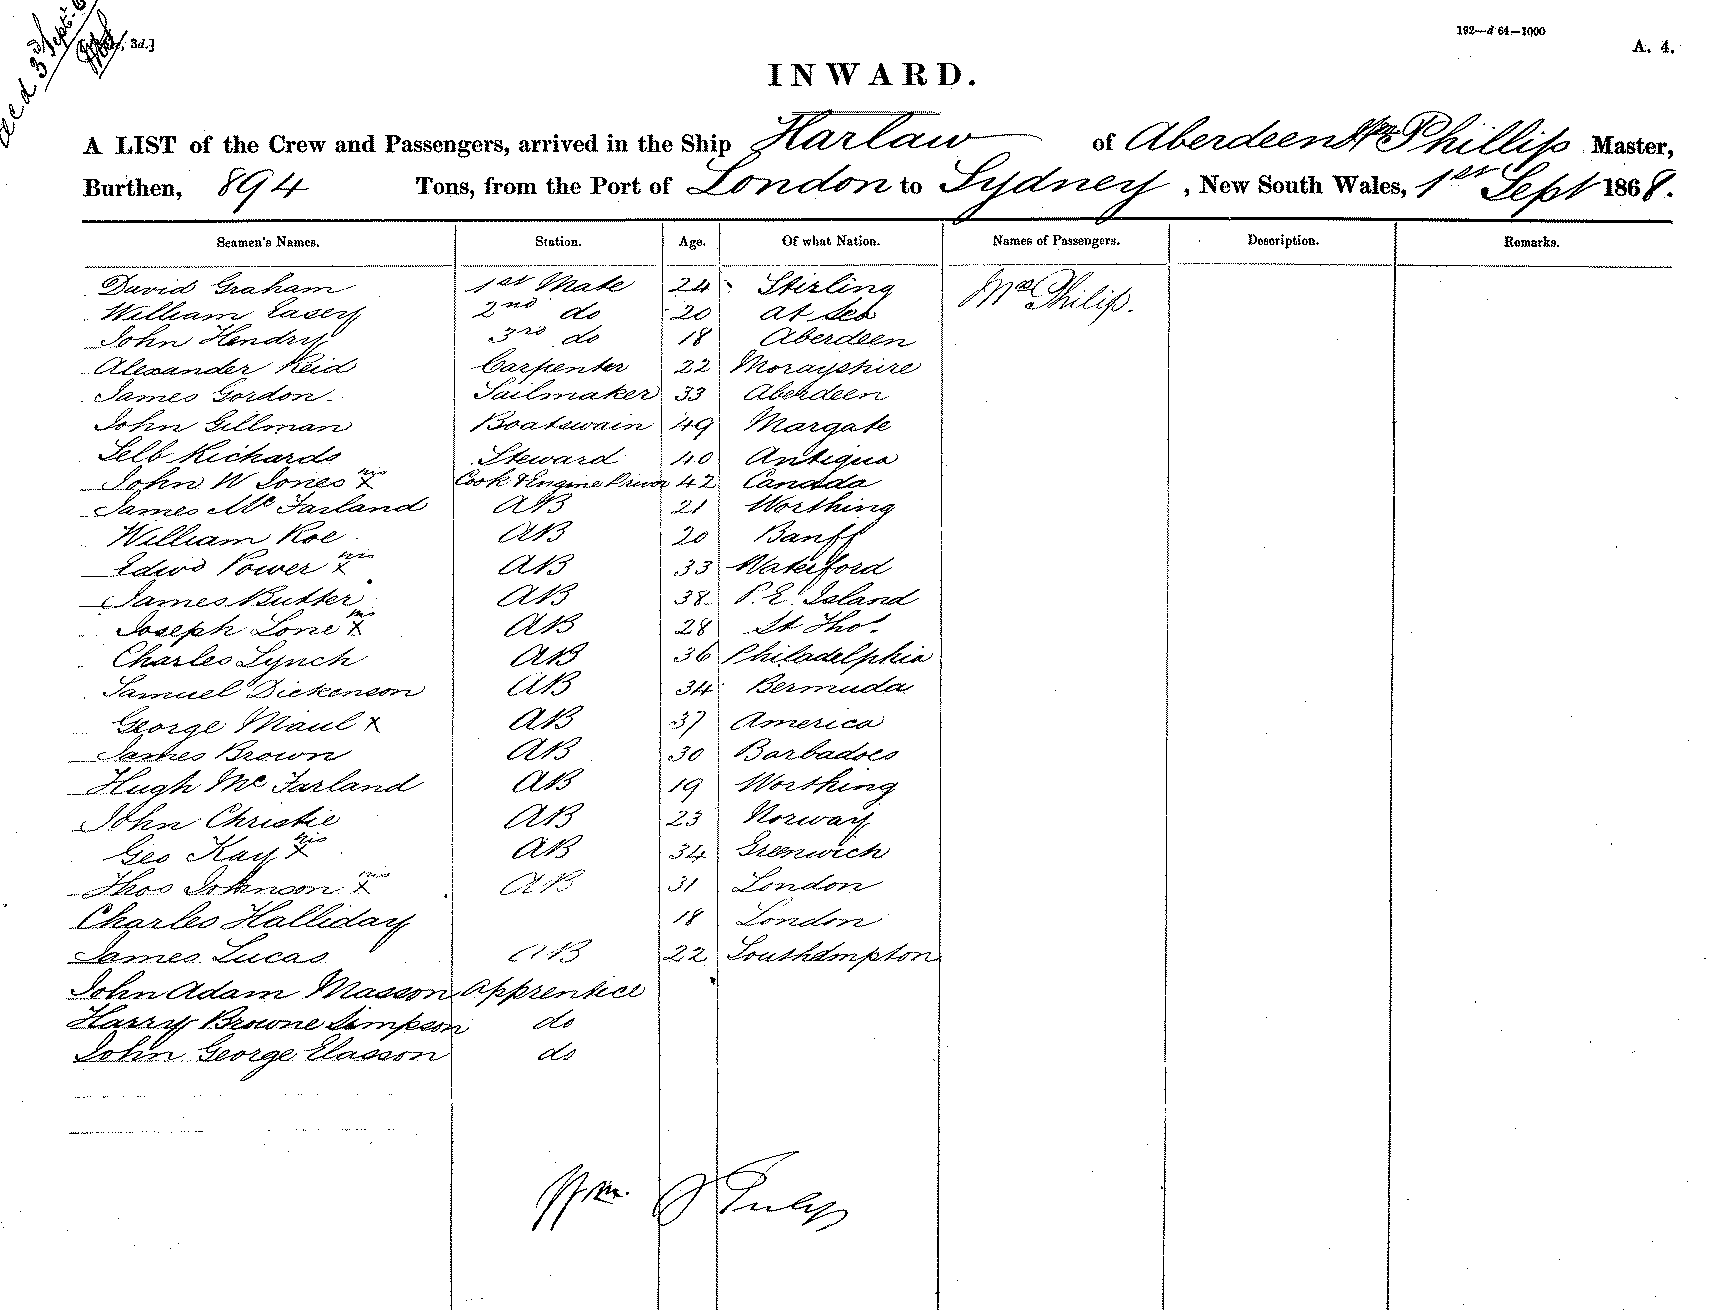 3rd Sept.
3d.]
192—d 64—1000
A. 4.
INWARD.
A LIST of the Crew and Passengers, arrived in the Ship Harlaw of Aberdeen Wm Phillip Master,
Burthen, 894 Tons, from the Port of London to Sydney, New South Wales, 1st Sept 1868.
Seamen's Names. Station. Age. Of what Nation. Names of Passengers. Description. Remarks.
David Graham 1st Mate 24 Stirling Mrs Philip.
William Easey 2nd do 20 at Sea
John Hendry 3rd do 18 Aberdeen
Alexander Reid Carpenter 22 Morayshire
James Gordon Sailmaker 33 Aberdeen
John Gillman Boatswain 49 Margate
Selb Richards Steward 40 Antigua
John W Jones his x Cook & Engine Driver 42 Canada
James Mc Farland AB 21 Worthing
William Roe AB 20 Banff
Edwd Power his x AB 33 Waterford
James Butter AB 38 P. E. Island
Joseph Lone his x AB 28 St Thos.
Charles Lynch AB 36 Philadelphia
Samuel Dickenson AB 34 Bermuda
George Maul x AB 37 America
James Brown AB 30 Barbadoes
Hugh Mc Farland AB 19 Worthing
John Christie AB 23 Norway
Geo Kay his x AB 34 Greenwich
Thos Johnson his x AB 31 London
Charles Halliday 18 London
James Lucas AB 22 Southampton
John Adam Masson Apprentice
Harry Browne Simpson do
John George Elasson do
Wm.